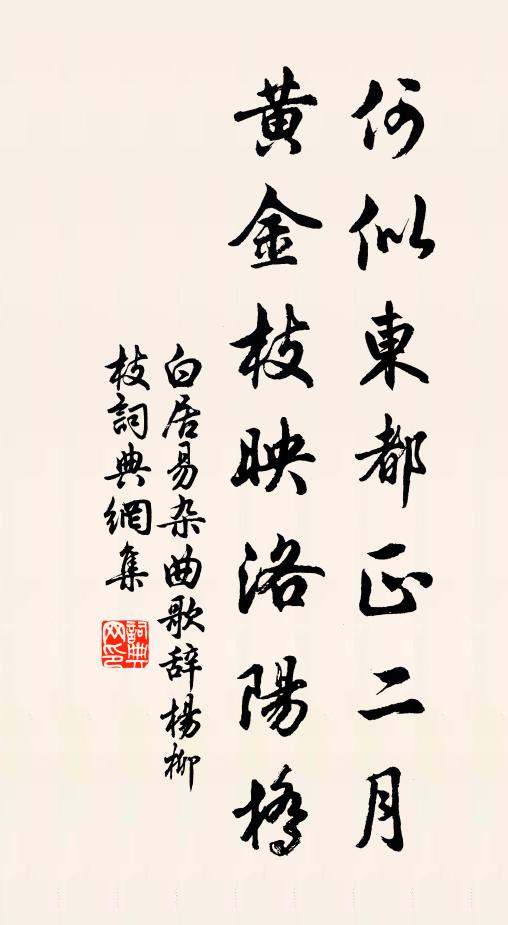 何似東都正二月
黃金枝映洛陽橋
白居易杂曲歌辞楊柳
枝詞典網集
詞典網印